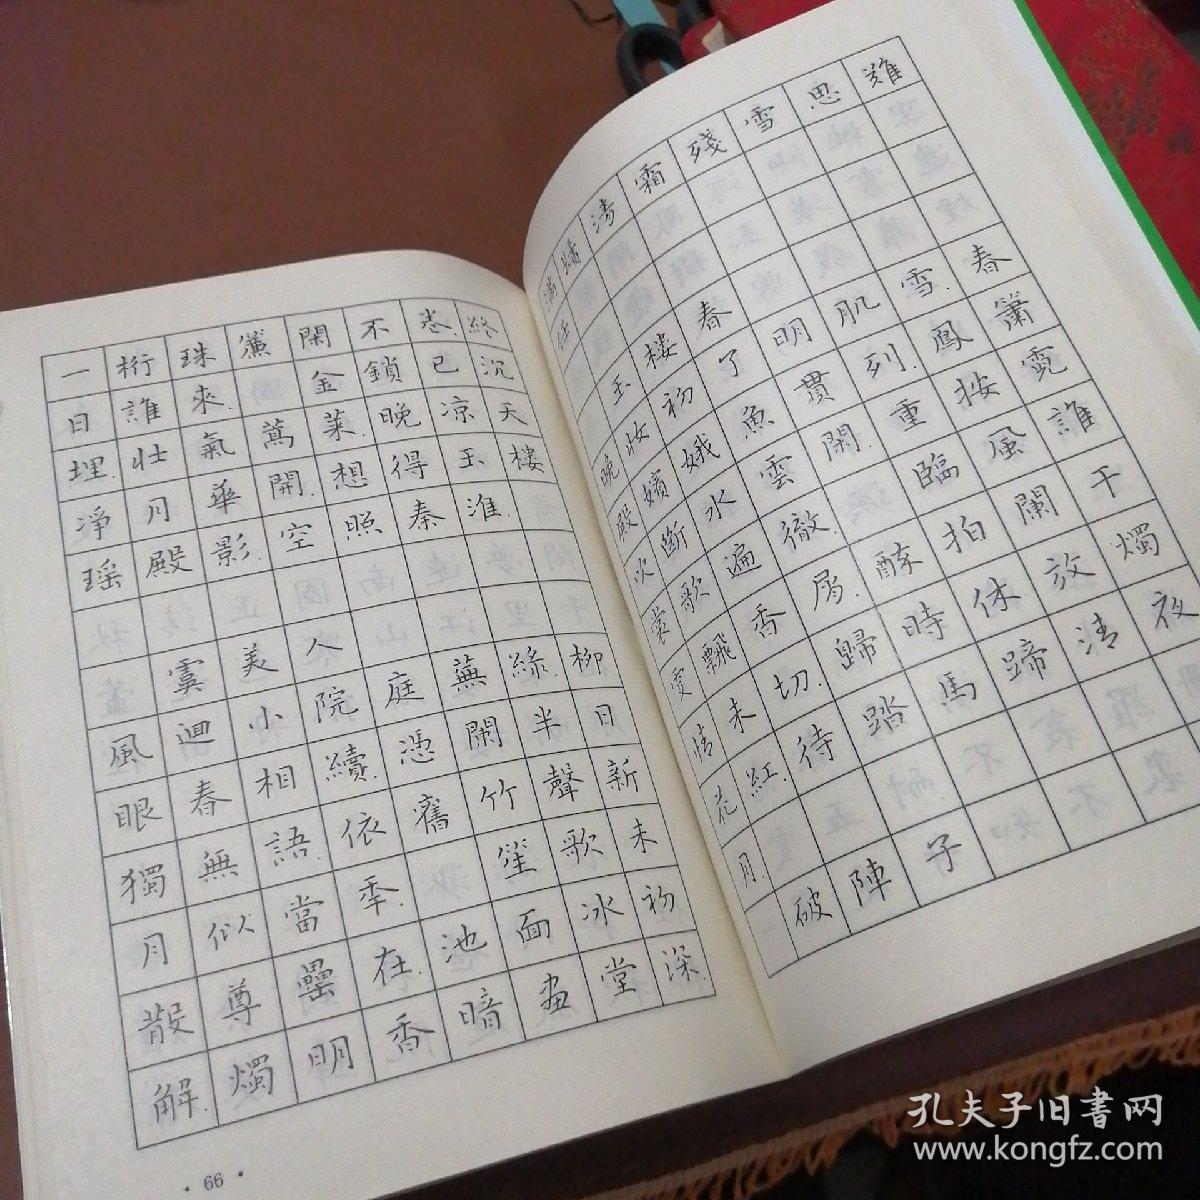 一桁珠簾閑不卷終
日誰來. 金鎖已沉
埋.壯氣蒿萊.晚凉天
淨月華開.想得玉樓
瑤殿影.空照秦淮.
虞美人
風迴小院庭蕪綠.柳
眼春相續.憑闌半日
獨無語.依舊竹聲新
月似當年. 笙歌未
散尊罍在.池面冰初
解.燭明香暗畫堂深.
· 66 ·
滿鬢清霜殘雪思難
任
玉樓春
晚妝初了明肌雪.春
殿嬪娥魚貫列.鳳簫
吹斷水雲閑.重按霓
裳歌遍徹. 臨風誰
更飄香屑.醉拍闌干
情未切.歸時休放燭
花紅.待踏馬蹄清夜
月.
破陣子
孔夫子旧書网
www.kongfz.com